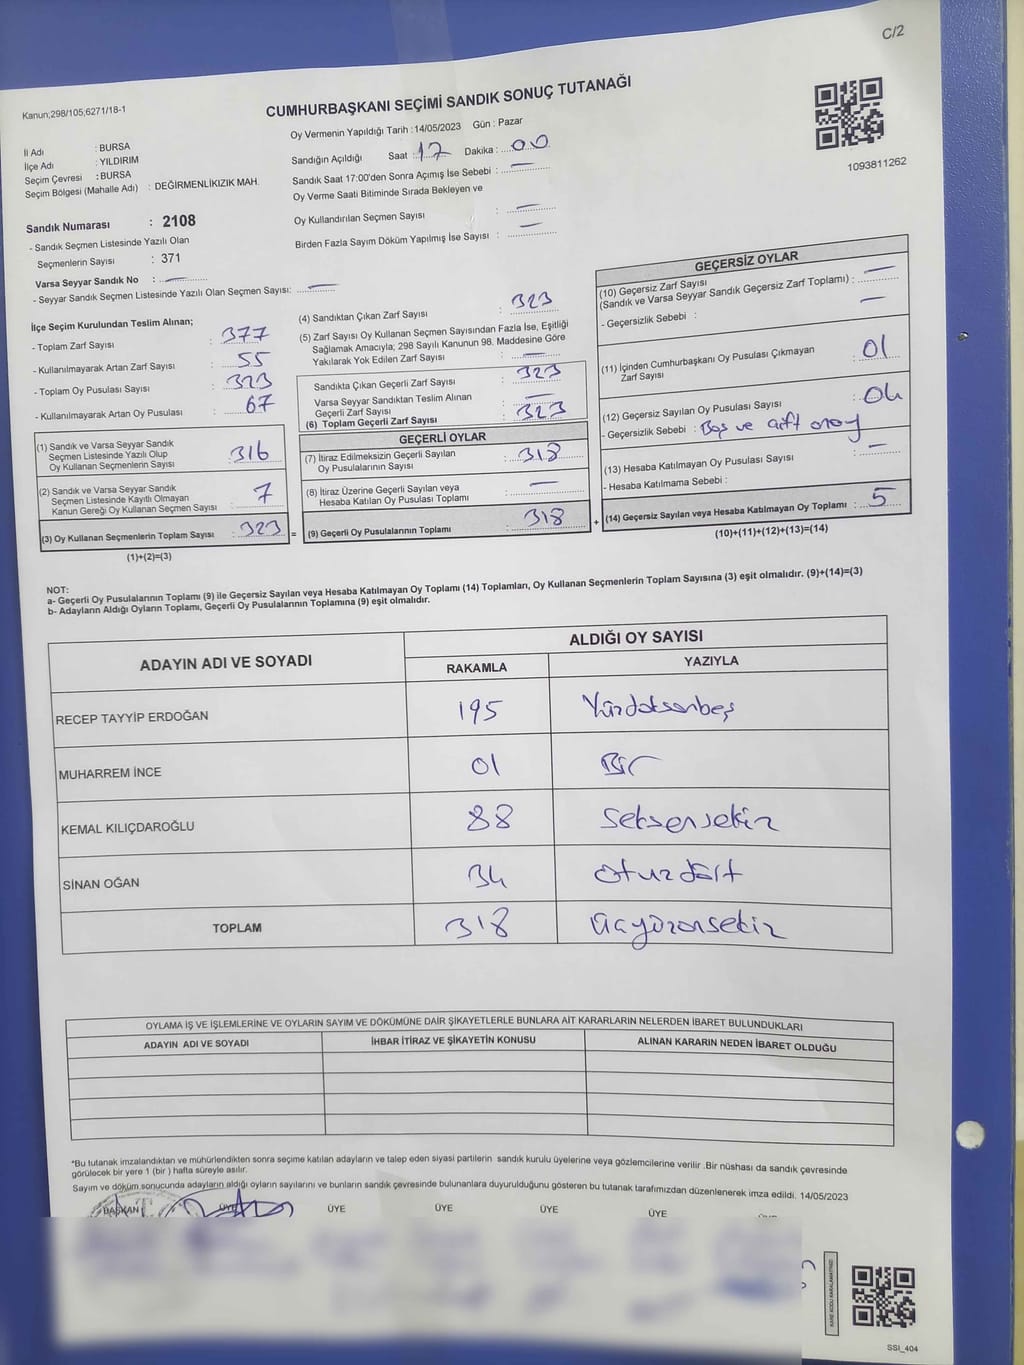 C/2
Kanun;298/105;6271/18-1
CUMHURBAŞKANI SEÇİMİ SANDIK SONUÇ TUTANAĞI
1093811262
İl Adı : BURSA
İlçe Adı : YILDIRIM
Seçim Çevresi : BURSA
Seçim Bölgesi (Mahalle Adı) : DEĞİRMENLİKIZIK MAH.
Oy Vermenin Yapıldığı Tarih : 14/05/2023 Gün : Pazar
Sandığın Açıldığı Saat : 17 Dakika : 00
Sandık Saat 17:00'den Sonra Açımış İse Sebebi : —
Oy Verme Saati Bitiminde Sırada Bekleyen ve
Oy Kullandırılan Seçmen Sayısı : —
Birden Fazla Sayım Döküm Yapılmış İse Sayısı : —
Sandık Numarası : 2108
- Sandık Seçmen Listesinde Yazılı Olan
Seçmenlerin Sayısı : 371
Varsa Seyyar Sandık No : —
- Seyyar Sandık Seçmen Listesinde Yazılı Olan Seçmen Sayısı: —
İlçe Seçim Kurulundan Teslim Alınan;
- Toplam Zarf Sayısı : 377
- Kullanılmayarak Artan Zarf Sayısı : 55
- Toplam Oy Pusulası Sayısı : 323
- Kullanılmayarak Artan Oy Pusulası : 67
(1) Sandık ve Varsa Seyyar Sandık
Seçmen Listesinde Yazılı Olup
Oy Kullanan Seçmenlerin Sayısı : 316
(2) Sandık ve Varsa Seyyar Sandık
Seçmen Listesinde Kayıtlı Olmayan
Kanun Gereği Oy Kullanan Seçmen Sayısı : 7
(3) Oy Kullanan Seçmenlerin Toplam Sayısı : 323 =
(1)+(2)=(3)
(4) Sandıktan Çıkan Zarf Sayısı : 323
(5) Zarf Sayısı Oy Kullanan Seçmen Sayısından Fazla İse, Eşitliği
Sağlamak Amacıyla; 298 Sayılı Kanunun 98. Maddesine Göre
Yakılarak Yok Edilen Zarf Sayısı : —
Sandıkta Çıkan Geçerli Zarf Sayısı : 323
Varsa Seyyar Sandıktan Teslim Alınan
Geçerli Zarf Sayısı : —
(6) Toplam Geçerli Zarf Sayısı : 323
GEÇERLİ OYLAR
(7) İtiraz Edilmeksizin Geçerli Sayılan
Oy Pusulalarının Sayısı : 318
(8) İtiraz Üzerine Geçerli Sayılan veya
Hesaba Katılan Oy Pusulası Toplamı : —
(9) Geçerli Oy Pusulalarının Toplamı : 318 +
GEÇERSİZ OYLAR
(10) Geçersiz Zarf Sayısı
(Sandık ve Varsa Seyyar Sandık Geçersiz Zarf Toplamı) : —
- Geçersizlik Sebebi : —
(11) İçinden Cumhurbaşkanı Oy Pusulası Çıkmayan
Zarf Sayısı : 01
(12) Geçersiz Sayılan Oy Pusulası Sayısı : 04
- Geçersizlik Sebebi : Boş ve çift onay
(13) Hesaba Katılmayan Oy Pusulası Sayısı : —
- Hesaba Katılmama Sebebi :
(14) Geçersiz Sayılan veya Hesaba Katılmayan Oy Toplamı : 5
(10)+(11)+(12)+(13)=(14)
NOT:
a- Geçerli Oy Pusulalarının Toplamı (9) ile Geçersiz Sayılan veya Hesaba Katılmayan Oy Toplamı (14) Toplamları, Oy Kullanan Seçmenlerin Toplam Sayısına (3) eşit olmalıdır. (9)+(14)=(3)
b- Adayların Aldığı Oyların Toplamı, Geçerli Oy Pusulalarının Toplamına (9) eşit olmalıdır.
ADAYIN ADI VE SOYADI ALDIĞI OY SAYISI
RAKAMLA YAZIYLA
RECEP TAYYİP ERDOĞAN 195 Yüzdoksanbeş
MUHARREM İNCE 01 Bir
KEMAL KILIÇDAROĞLU 88 Seksensekiz
SİNAN OĞAN 34 Otuzdört
TOPLAM 318 Üçyüzonsekiz
OYLAMA İŞ VE İŞLEMLERİNE VE OYLARIN SAYIM VE DÖKÜMÜNE DAİR ŞİKAYETLERLE BUNLARA AİT KARARLARIN NELERDEN İBARET BULUNDUKLARI
ADAYIN ADI VE SOYADI İHBAR İTİRAZ VE ŞİKAYETİN KONUSU ALINAN KARARIN NEDEN İBARET OLDUĞU
*Bu tutanak imzalandıktan ve mühürlendikten sonra seçime katılan adayların ve talep eden siyasi partilerin sandık kurulu üyelerine veya gözlemcilerine verilir .Bir nüshası da sandık çevresinde
görülecek bir yere 1 (bir ) hafta süreyle asılır.
Sayım ve döküm sonucunda adayların aldığı oyların sayılarını ve bunların sandık çevresinde bulunanlara duyurulduğunu gösteren bu tutanak tarafımızdan düzenlenerek imza edildi. 14/05/2023
BAŞKAN ÜYE ÜYE ÜYE ÜYE ÜYE
KARE KODU KARALAMAYINIZ!
SSI_404